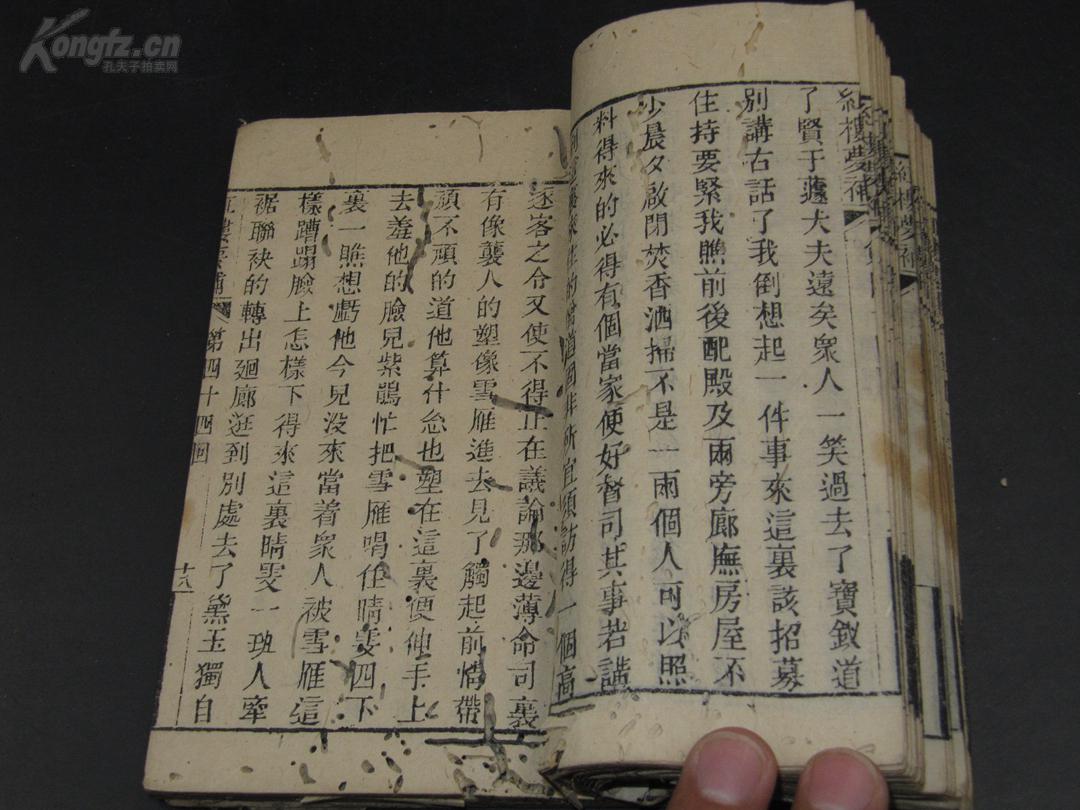 Kongfz.cn
孔夫子拍卖网
紅樓夢補
了賢于蘧大夫遠矣衆人一笑過去了寶釵道
別講右話了我倒想起一件事來這裏該招募
住持要緊我瞧前後配殿及兩旁廊廡房屋不
少晨夕啟閉焚香洒掃不是一兩個人可以照
料得來的必得有個當家便好督司其事若講
所宜須訪得一個高
逐客之令又使不得正在議論那邊薄命司裏
有像襲人的塑像雪雁進去見了觸起前情帶
頑不頑的道他算什忩也塑在這裏便伸手上
去羞他的臉兒紫鵑忙把雪雁喝住晴雯四下
裏一瞧想虧他今兒没來當着衆人被雪雁這
樣蹧蹋臉上怎樣下得來這裏晴雯一班人牽
裾聯袂的轉出廻廊逛到別處去了黛玉獨自
第四十四回
十八
紅樓夢補